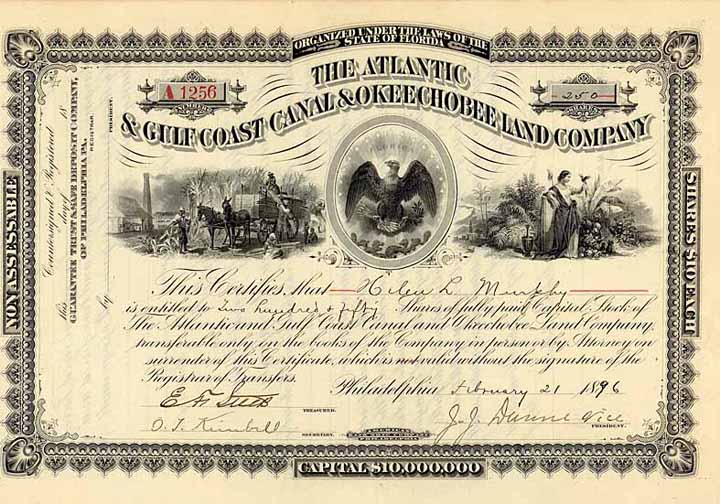 ORGANIZED UNDER THE LAWS OF THE
STATE OF FLORIDA
A 1256
NUMBER
250
SHARES
THE ATLANTIC
& GULF COAST CANAL & OKEECHOBEE LAND COMPANY
NON ASSESSABLE
Countersigned & Registered
this day of 18
GUARANTEE TRUST & SAFE DEPOSIT COMPANY,
OF PHILADELPHIA PA.
REGISTRAR.
by
PRESIDENT.
SHARES $10 EACH
This Certifies, that Helen L Murphy
is entitled to Two hundred & fifty Shares of fully paid Capital Stock of
The Atlantic and Gulf Coast Canal and Okeechobee Land Company,
transferable only on the books of the Company in person or by Attorney on
surrender of this Certificate, which is not valid without the signature of the
Registrar of Transfers.
Philadelphia February 21 1896
TREASURER.
O. T. Kimball
SECRETARY.
AMERICAN
BANK NOTE COMPANY
PHILADELPHIA
J. J. Dunne Vice
PRESIDENT.
CAPITAL $10,000,000